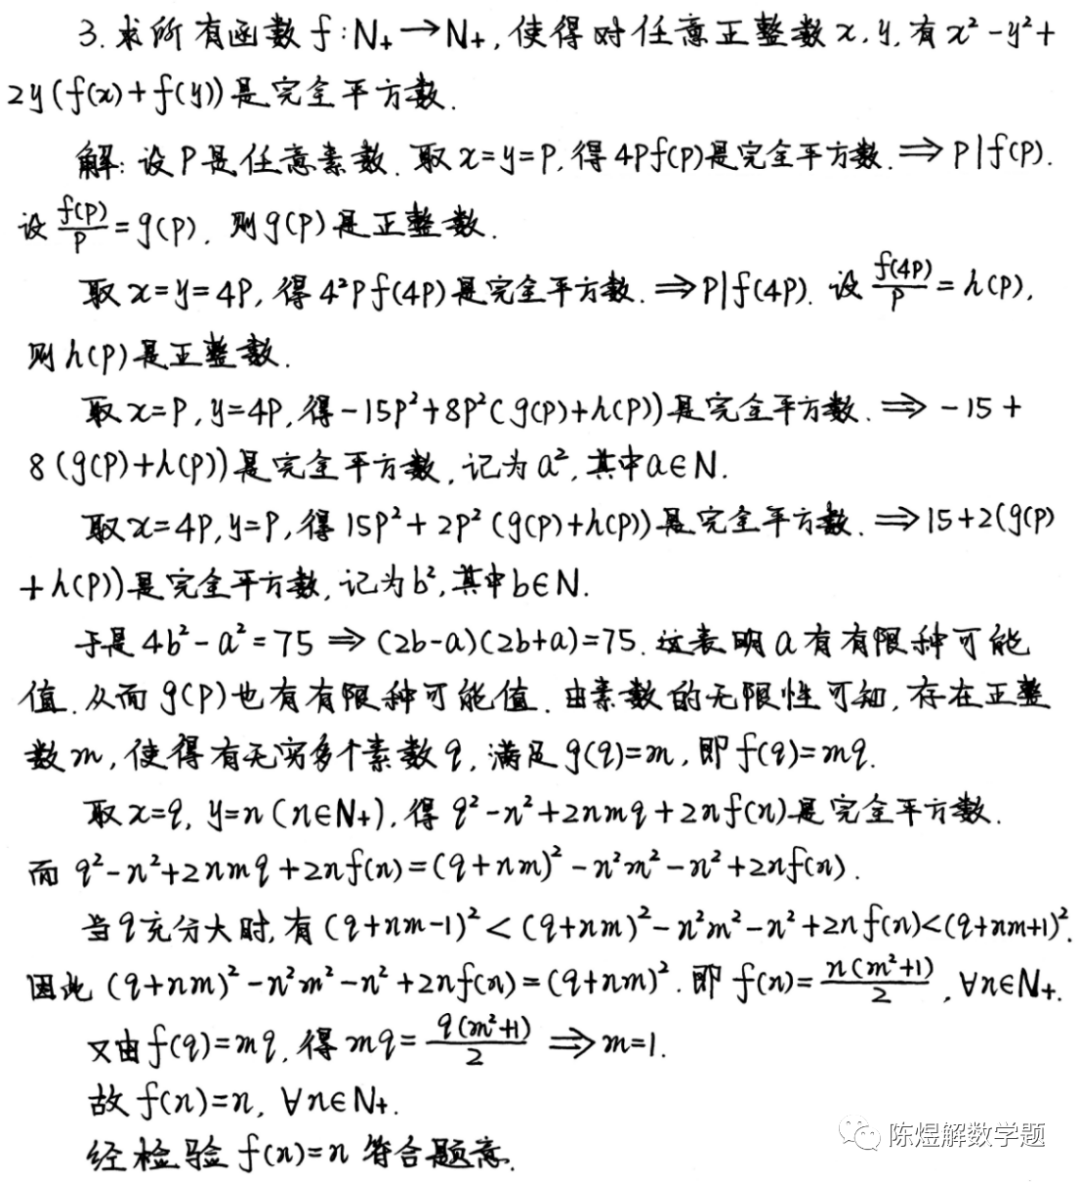 3. 求所有函数 f:N₊→N₊, 使得对任意正整数 x, y, 有 x²-y²+
2y(f(x)+f(y)) 是完全平方数.
解: 设 P 是任意素数. 取 x=y=P, 得 4Pf(P) 是完全平方数. ⟹ P|f(P).
设 f(P)/P = g(P), 则 g(P) 是正整数.
取 x=y=4P, 得 4²Pf(4P) 是完全平方数. ⟹ P|f(4P). 设 f(4P)/P = h(P),
则 h(P) 是正整数.
取 x=P, y=4P, 得 -15P²+8P²(g(P)+h(P)) 是完全平方数. ⟹ -15+
8(g(P)+h(P)) 是完全平方数, 记为 a², 其中 a∈N.
取 x=4P, y=P, 得 15P²+2P²(g(P)+h(P)) 是完全平方数. ⟹ 15+2(g(P)
+h(P)) 是完全平方数, 记为 b², 其中 b∈N.
于是 4b²-a²=75 ⟹ (2b-a)(2b+a)=75. 这表明 a 有有限种可能
值. 从而 g(P) 也有有限种可能值. 由素数的无限性可知, 存在正整
数 m, 使得有无穷多个素数 q, 满足 g(q)=m, 即 f(q)=mq.
取 x=q, y=n (n∈N₊), 得 q²-n²+2nmq+2nf(n) 是完全平方数.
而 q²-n²+2nmq+2nf(n)=(q+nm)²-n²m²-n²+2nf(n).
当 q 充分大时, 有 (q+nm-1)²<(q+nm)²-n²m²-n²+2nf(n)<(q+nm+1)².
因此 (q+nm)²-n²m²-n²+2nf(n)=(q+nm)². 即 f(n)=n(m²+1)/2, ∀n∈N₊.
又由 f(q)=mq, 得 mq=q(m²+1)/2 ⟹ m=1.
故 f(n)=n, ∀n∈N₊.
经检验 f(n)=n 符合题意.
陈煜解数学题